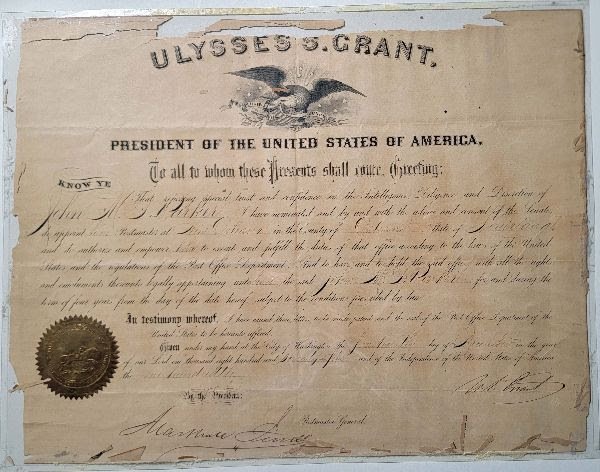 ULYSSES S. GRANT,
PRESIDENT OF THE UNITED STATES OF AMERICA,
To all to whom these Presents shall come, Greeting:
KNOW YE
That reposing special trust and confidence in the Intelligence, Diligence and Discretion of
John M. G. Parker I have nominated and by and with the advice and consent of the Senate,
do appoint him Postmaster at New Orleans in the County of State of Louisiana
and do authorize and empower him to execute and fulfil the duties of that office according to the laws of the United
States and the regulations of the Post Office Department. And to have and to hold the said office with all the rights
and emoluments thereunto legally appertaining unto him the said Parker for and during the
term of four years from the day of the date hereof subject to the conditions provided by law.
In testimony whereof, I have caused these letters to be made patent and the seal of the Post Office Department of the
United States to be hereunto affixed.
Given under my hand at the City of Washington the day of in the year
of our Lord one thousand eight hundred and seventy and of the Independence of the United States of America
the
By the President:
U. S. Grant
Marshall Jewell
Postmaster General.